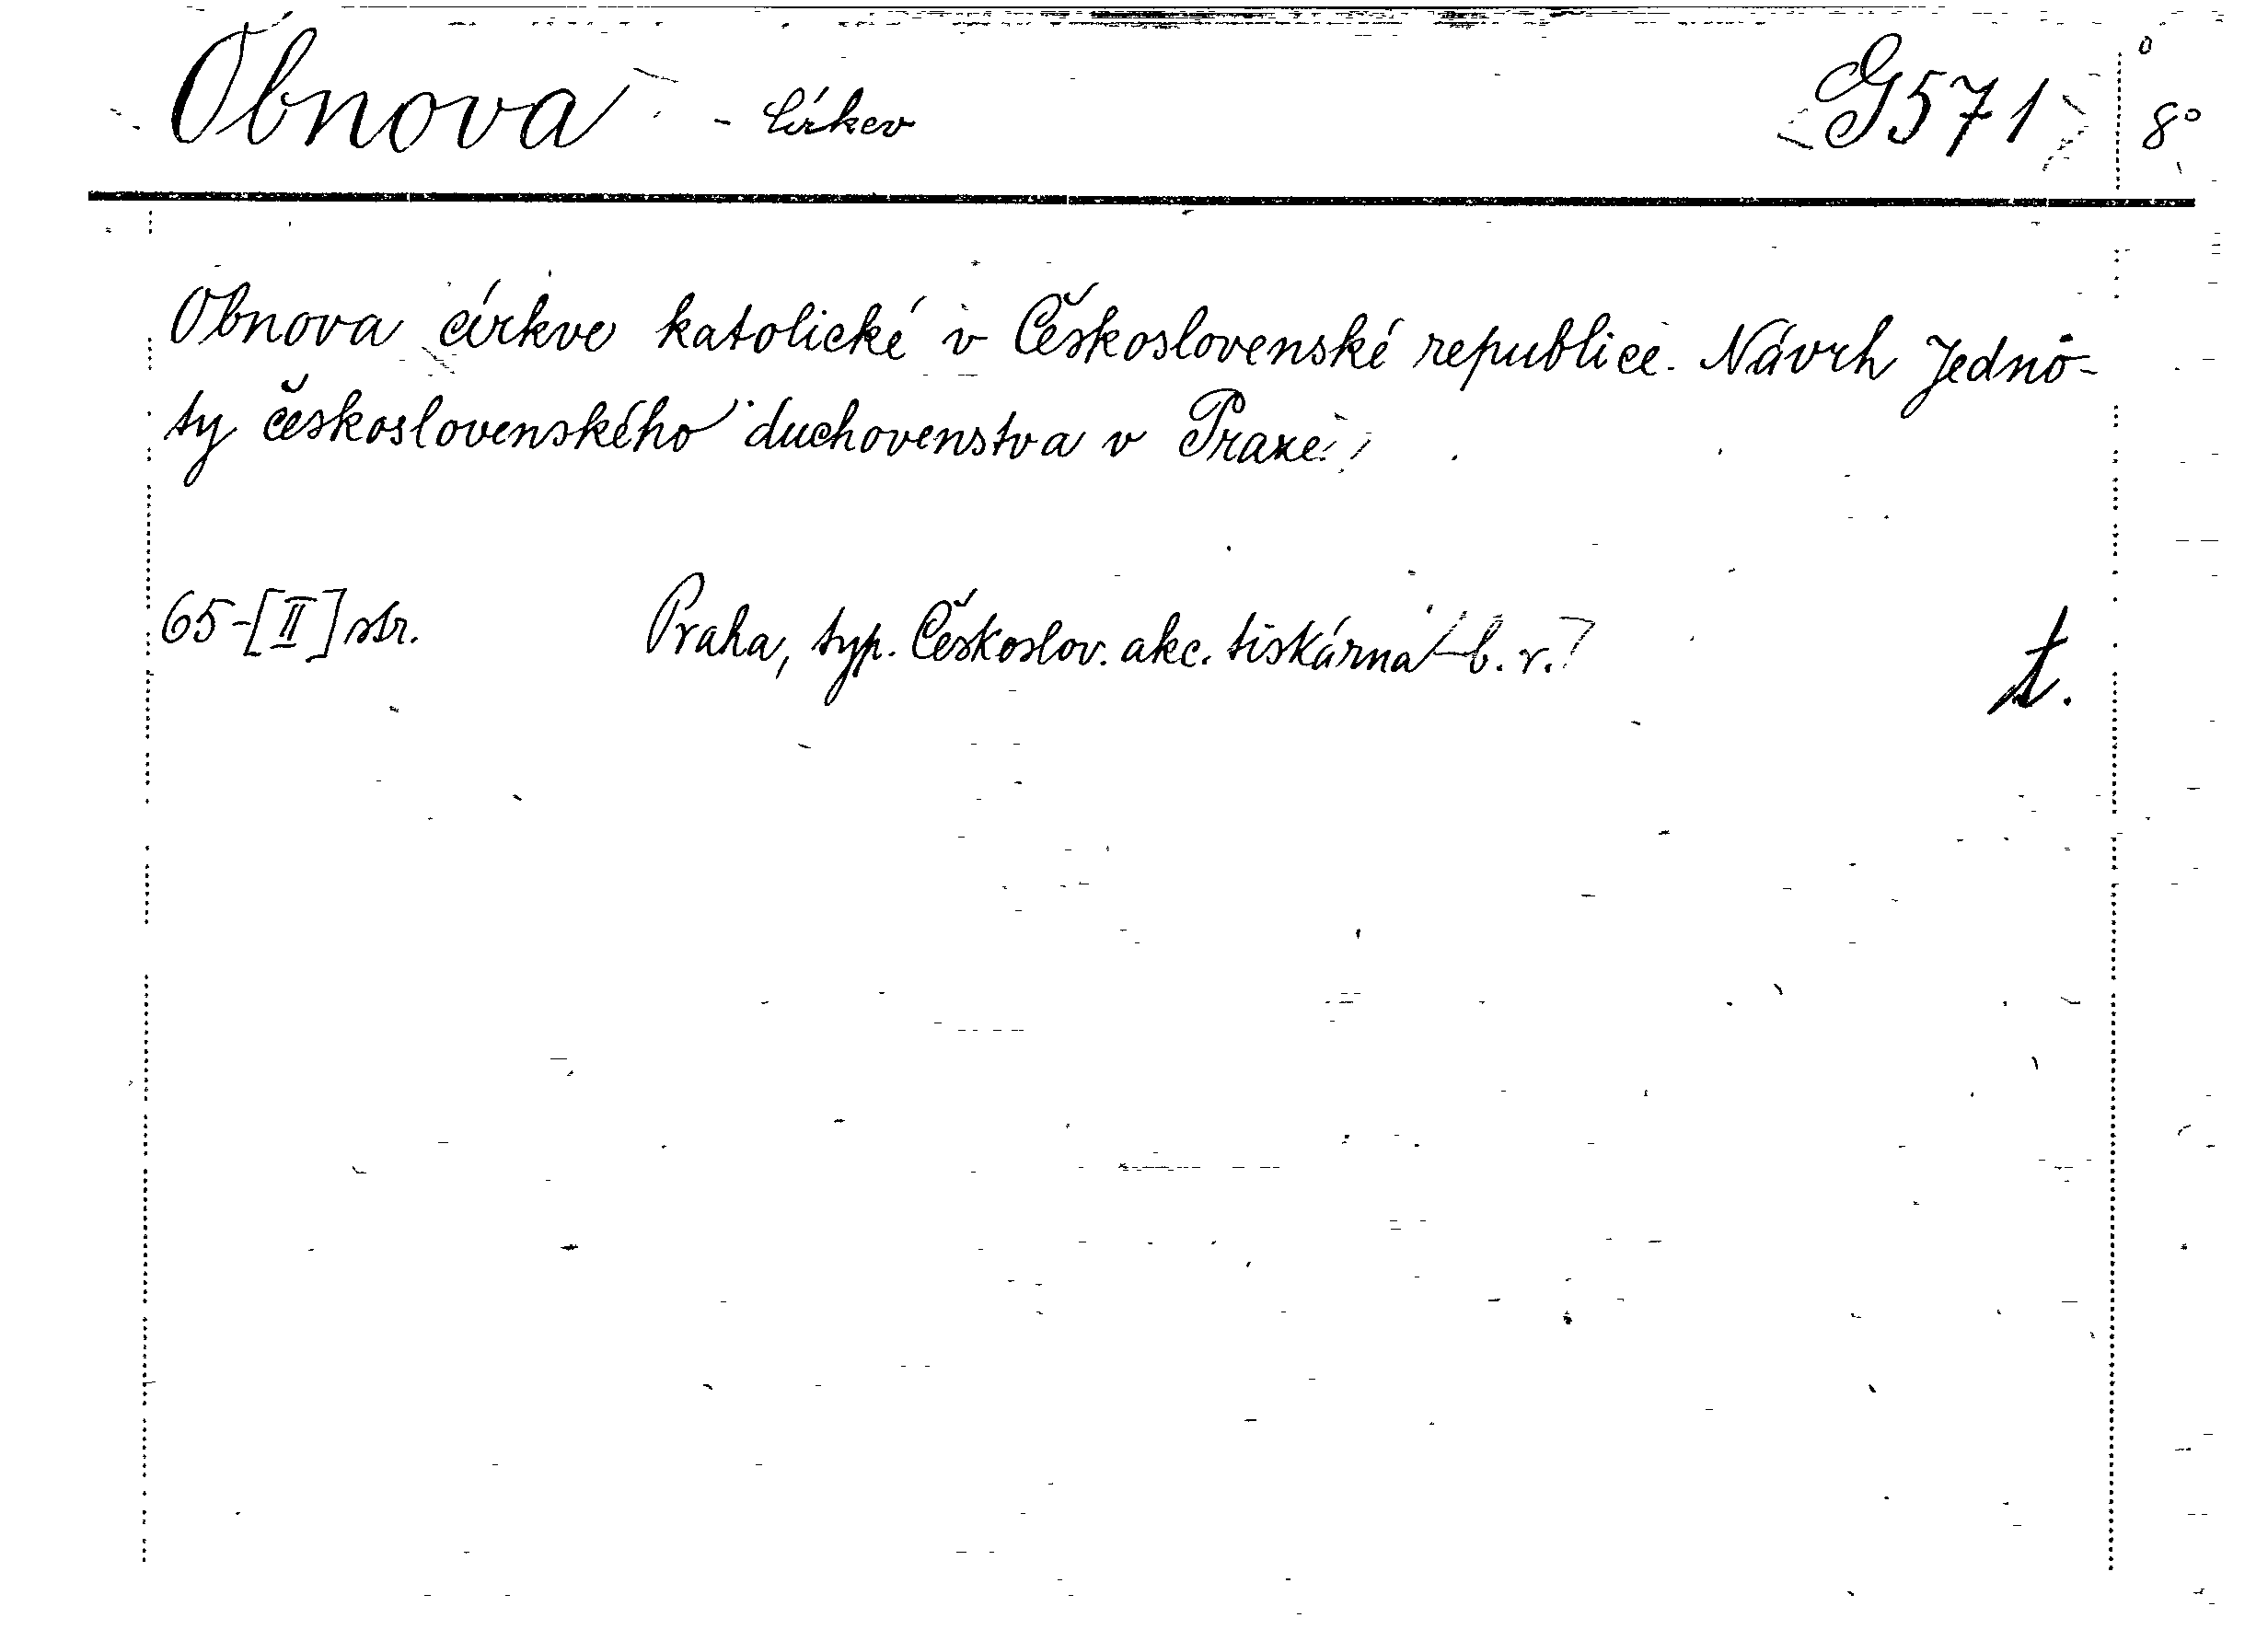 Obnova - Církev G571 8°
Obnova církve katolické v Československé republice. Návrh Jedno-
ty československého duchovenstva v Praze.
65-[II] str. Praha, typ. Českoslov. akc. tiskárna [b. r.]
t.